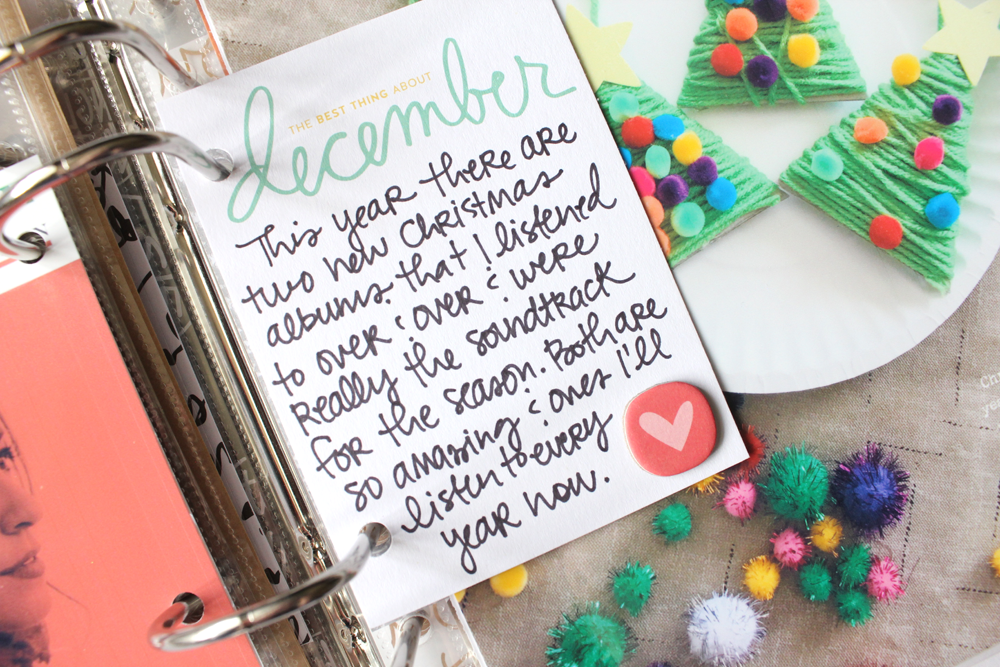 THE BEST THING ABOUT
december
This year there are
two new Christmas
albums that I listened
to over & over & were
Really the soundtrack
for the season. Both are
so amazing & ones I'll
listen to every
year now.